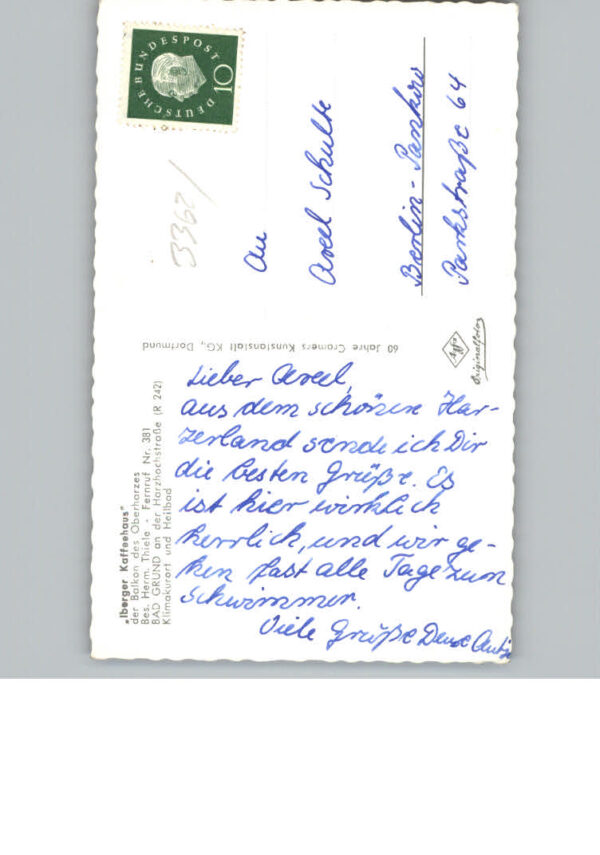 DEUTSCHE BUNDESPOST
10
3362/
An
Axel Schulte
Berlin-Pankow
Parkstraße 64
60 Jahre Cramers Kunstanstalt KG., Dortmund
Agfa
Originalfoto
„Iberger Kaffeehaus"
der Balkon des Oberharzes
Bes. Herm. Thiele - Fernruf Nr. 381
BAD GRUND an der Harzhochstraße (R 242)
Klimakurort und Heilbad
Lieber Axel,
aus dem schönen Har-
zerland sende ich Dir
die besten Grüße. Es
ist hier wirklich
herrlich, und wir ge-
hen fast alle Tage zum
schwimmen.
Viele Grüße Deine Antje